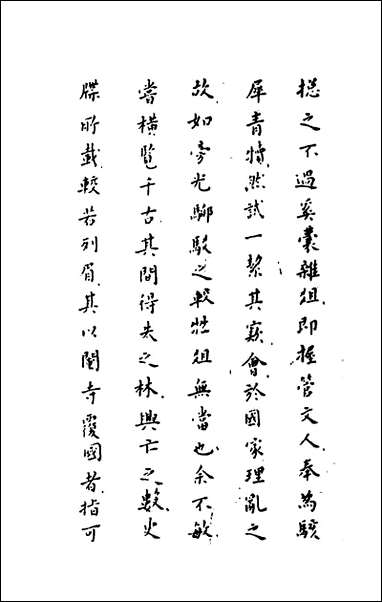 總之不過奚囊雜俎即握管文人奉為駭
犀青犢然試一絜其窾會於國家理亂之
故如旁光駵駁之較牲俎無當也余不敏
嘗橫覽千古其間得失之林興亡之數史
牒所載較若列眉其以閹寺覆國者指可